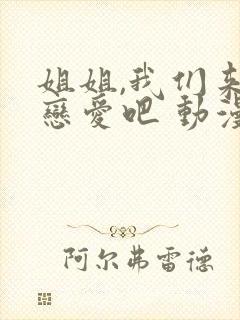 姐姐,我们来
戀愛吧 動漫
阿尔弗雷德